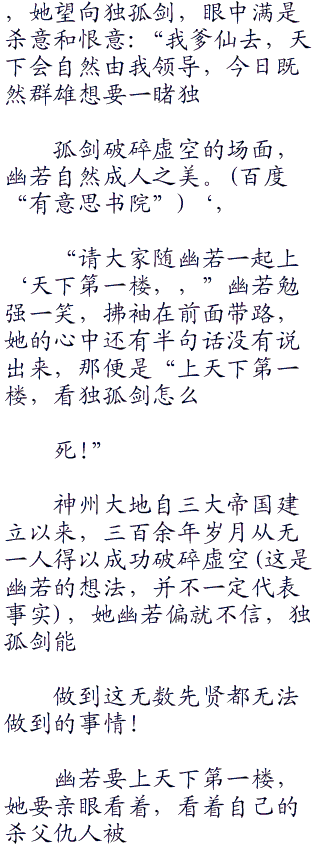 ，她望向独孤剑，眼中满是
杀意和恨意：“我爹仙去，天
下会自然由我领导，今日既
然群雄想要一睹独
孤剑破碎虚空的场面，
幽若自然成人之美。(百度
“有意思书院”)‘，
“请大家随幽若一起上
‘天下第一楼，，”幽若勉
强一笑，拂袖在前面带路，
她的心中还有半句话没有说
出来，那便是“上天下第一
楼，看独孤剑怎么
死！”
神州大地自三大帝国建
立以来，三百余年岁月从无
一人得以成功破碎虚空(这是
幽若的想法，并不一定代表
事实)，她幽若偏就不信，独
孤剑能
做到这无数先贤都无法
做到的事情！
幽若要上天下第一楼，
她要亲眼看着，看着自己的
杀父仇人被